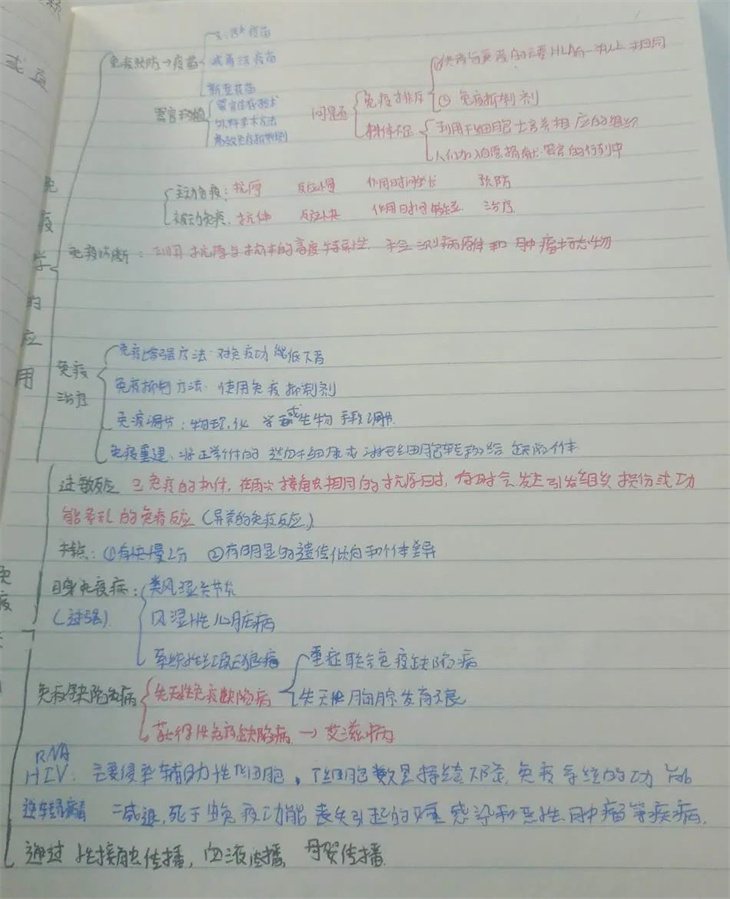 免疫预防→疫苗
灭活疫苗
减毒活疫苗
新型疫苗
器官移植
外科手术方法
高效免疫抑制剂
问题
免疫排斥
①供者与受者的主要HLA有一半以上相同
②免疫抑制剂
利用干细胞培养相应的组织
人们加入自愿捐献器官的行列中
主动免疫:抗原 反应慢 作用时间长 预防
被动免疫:抗体 反应快 作用时间短 治疗
免疫学的应用
免疫诊断:利用抗原与抗体的高度特异性 检测病原体和肿瘤标志物
免疫治疗
免疫增强疗法:对免疫功能低下者
免疫抑制疗法:使用免疫抑制剂
免疫调节:物理、化学或生物手段调节
免疫重建:将正常个体的造血干细胞或淋巴细胞转移给缺陷个体
过敏反应 已免疫的机体,在再次接触相同的抗原时,有时会发生引发组织损伤或功
能紊乱的免疫反应(异常的免疫反应)
特点:①有快慢之分 ②有明显的遗传倾向和个体差异
自身免疫病:
(过强)
类风湿关节炎
风湿性心脏病
系统性红斑狼疮
免疫缺陷病
先天性免疫缺陷病
重症联合免疫缺陷病
先天性胸腺发育不良
获得性免疫缺陷病→艾滋病
RNA
HIV:主要侵染辅助性T细胞,T细胞数量持续下降,免疫系统的功能
逆转录病毒 减退,死于免疫功能丧失引起的严重感染和恶性肿瘤等疾病.
通过性接触传播,血液传播,母婴传播.